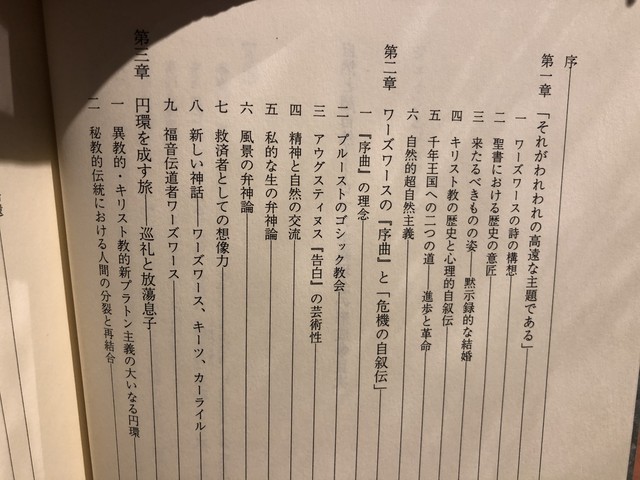 序
第一章 「それがわれわれの高遠な主題である」
一 ワーズワースの詩の構想
二 聖書における歴史の意匠
三 来たるべきものの姿――黙示録的な結婚
四 キリスト教の歴史と心理的自叙伝
五 千年王国への二つの道――進歩と革命
六 自然的超自然主義
第二章 ワーズワースの『序曲』と「危機の自叙伝」
一 『序曲』の理念
二 プルーストのゴシック教会
三 アウグスティヌス『告白』の芸術性
四 精神と自然の交流
五 私的な生の弁神論
六 風景の弁神論
七 救済者としての想像力
八 新しい神話――ワーズワース、キーツ、カーライル
九 福音伝道者ワーズワース
第三章 円環を成す旅――巡礼と放蕩息子
一 異教的・キリスト教的新プラトン主義の大いなる円環
二 秘教的伝統における人間の分裂と再結合